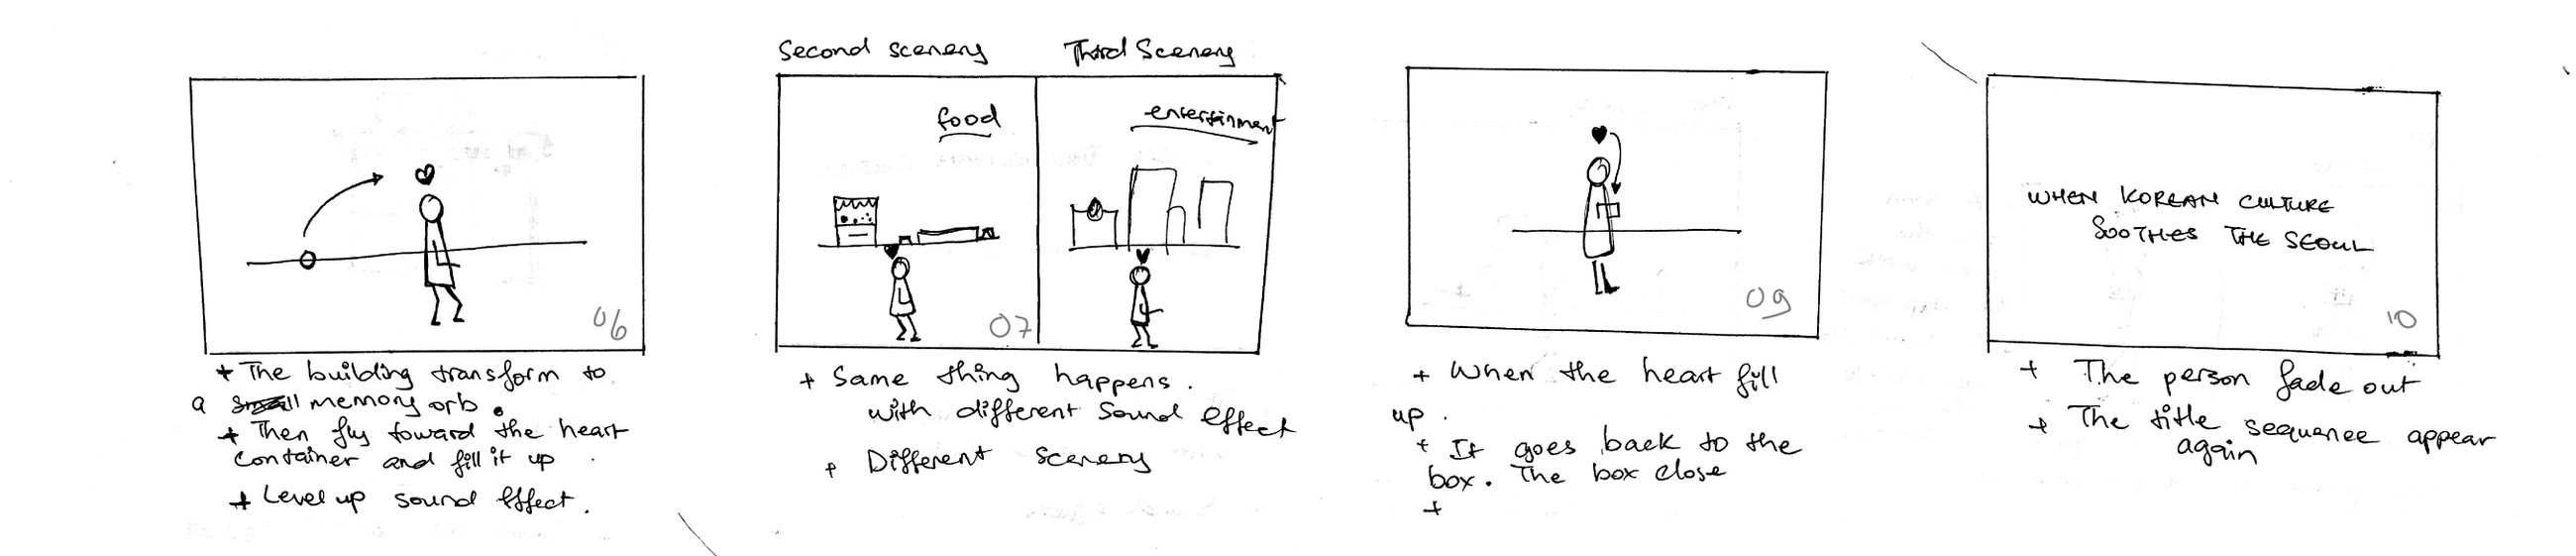 06
+ The building transform to
a memory orb.
+ Then fly toward the heart
container and fill it up.
+ Level up sound effect.
Second scenery
Third Scenery
food
entertainment
07
+ Same thing happens.
with different sound effect
+ Different scenery
09
+ When the heart fill
up.
+ It goes back to the
box. The box close
+
WHEN KOREAN CULTURE
SOOTHES THE SEOUL
10
+ The person fade out
+ The title sequence appear
again